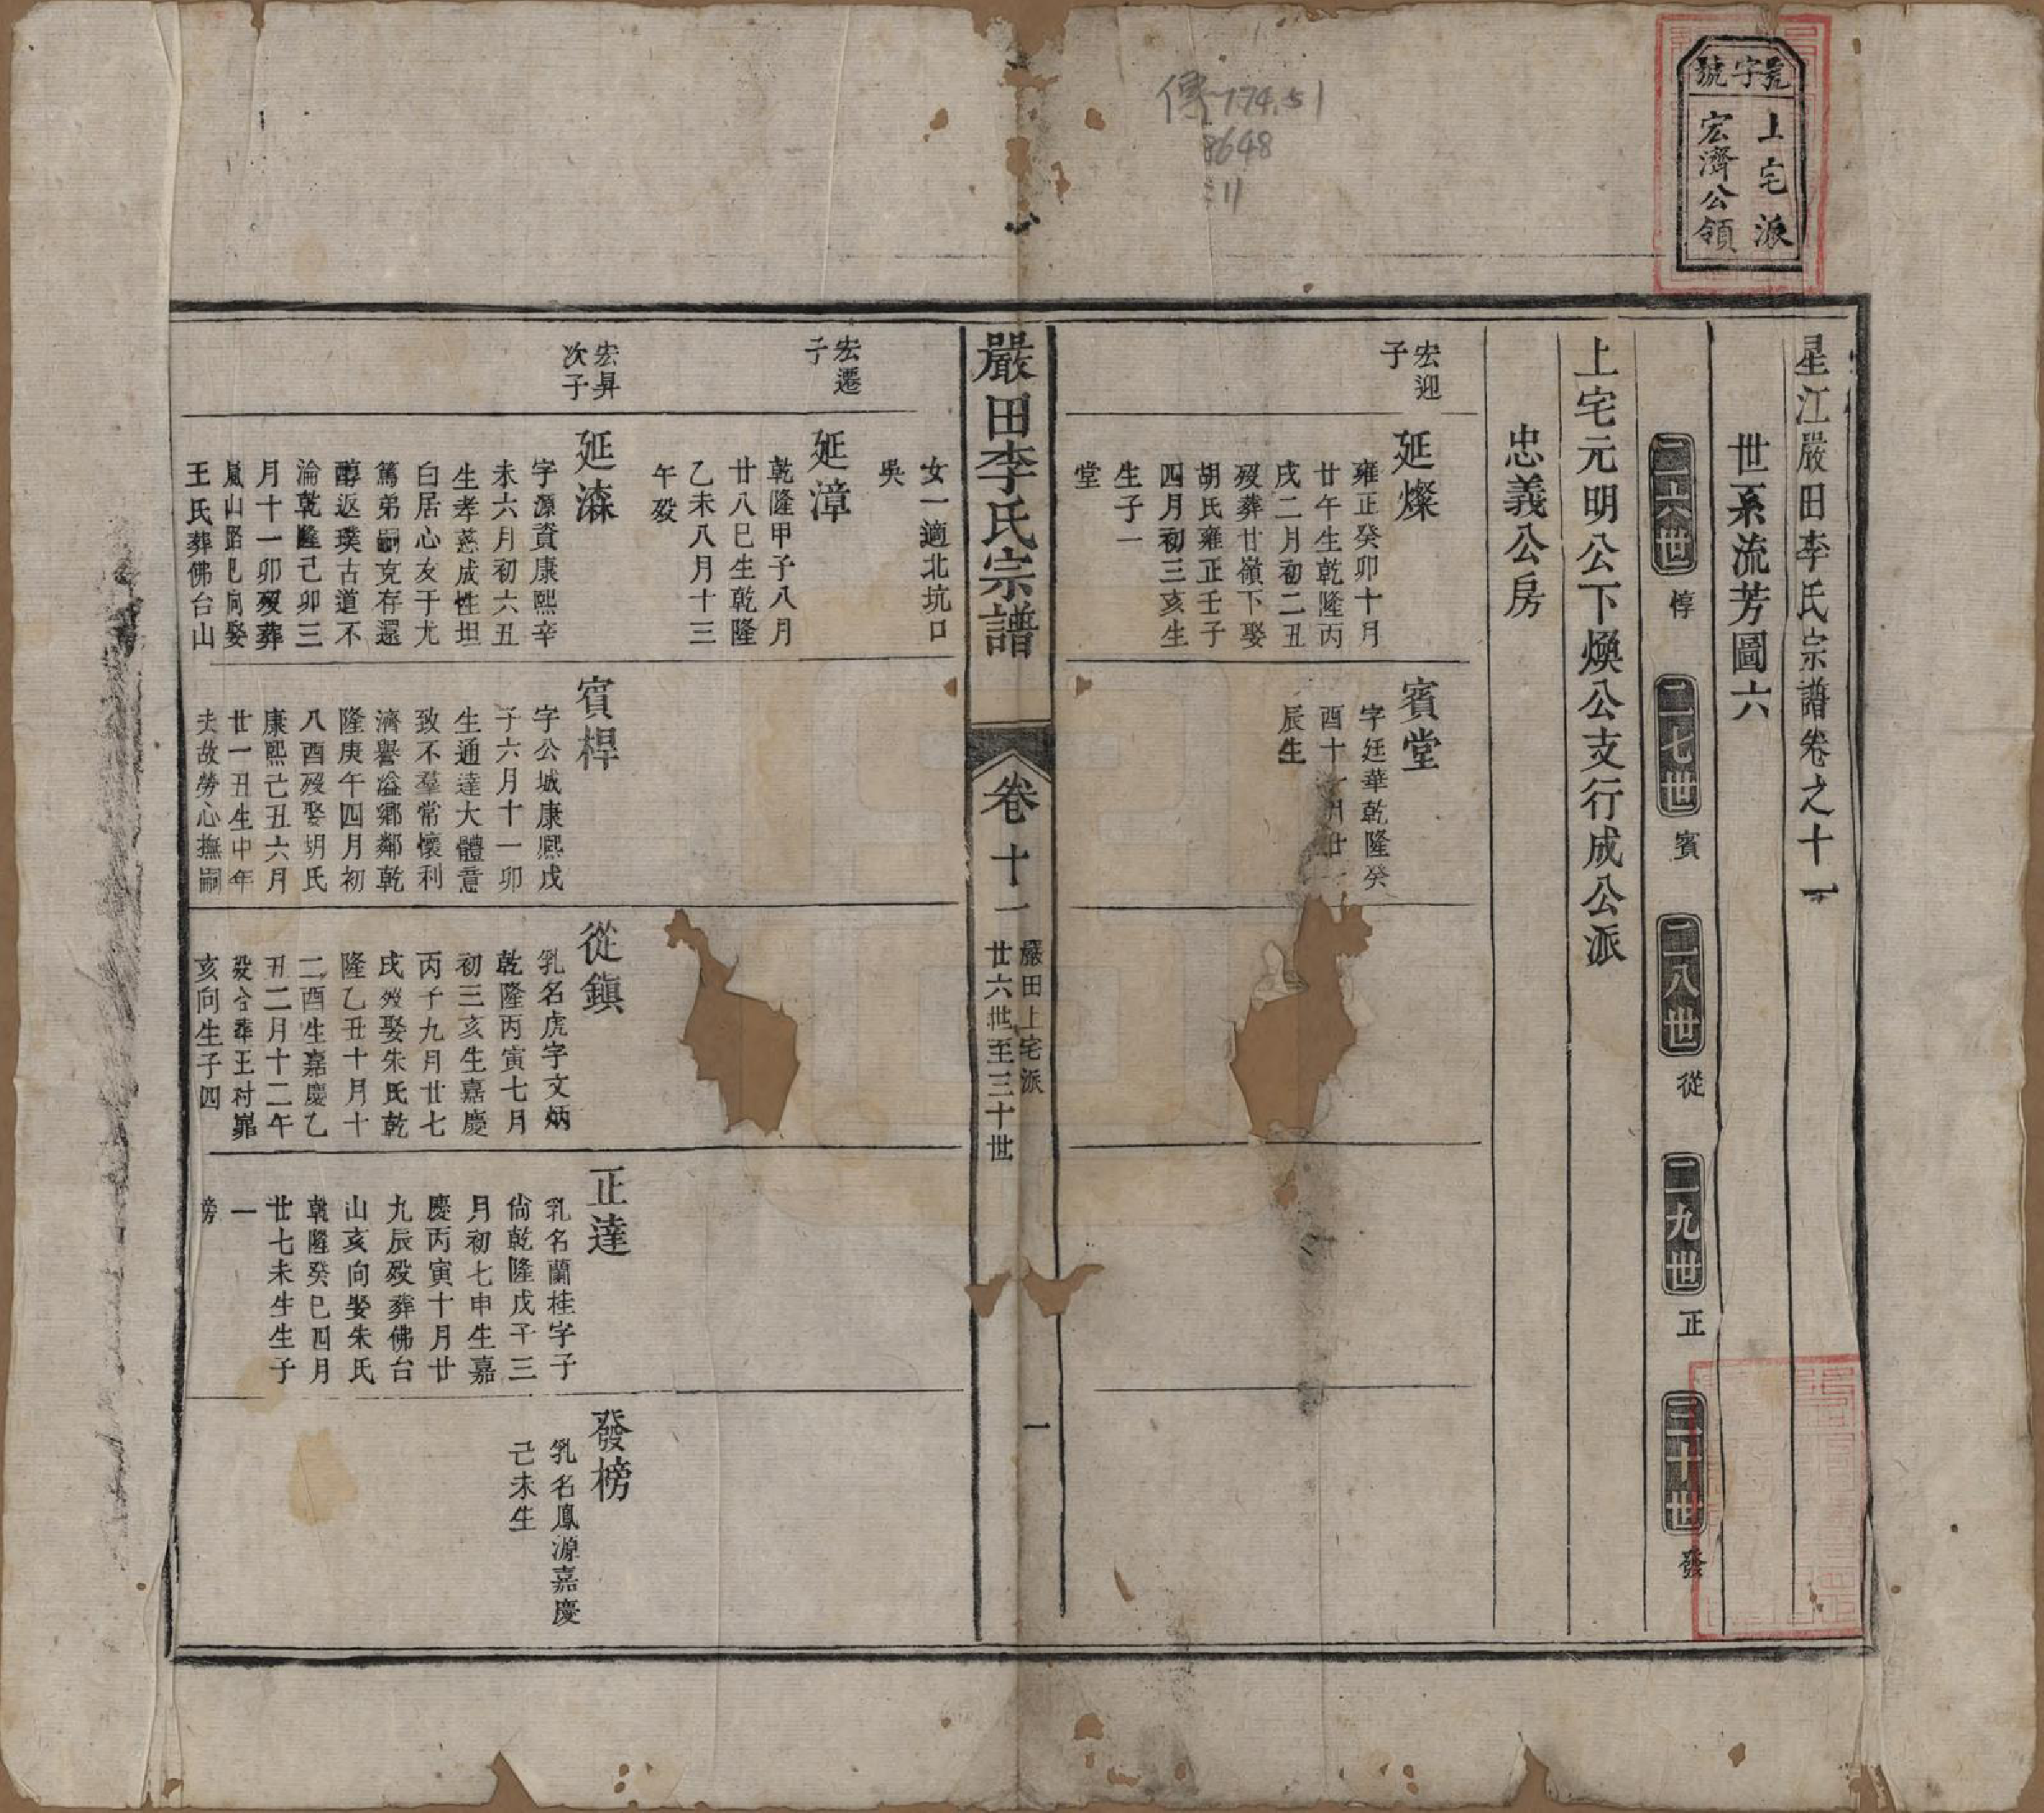 號字號
上宅派
宏濟公領
傳 774.51
8648
:11
星江嚴田李氏宗譜卷之十一
世系流芳圖六
二六世 惇 二七世 賓 二八世 從 二九世 正 三十世 發
上宅元明公下煥公支行成公派
忠義公房
宏迎
子
延燦
雍正癸卯十月
廿午生乾隆丙
戌二月初二丑
歿葬廿嶺下娶
胡氏雍正壬子
四月初三亥生
生子一
堂
賓堂
字廷華乾隆癸
酉十一月廿一
辰生
嚴田李氏宗譜
卷十一
嚴田上宅派
廿六世至三十世
一
女一適北坑口
吳
宏遷
子
延漳
乾隆甲子八月
廿八巳生乾隆
乙未八月十三
午歿
宏昇
次子
延潹
字源資康熙辛
未六月初六丑
生孝慈成性坦
白居心友于尤
篤弟嗣克存還
醇返璞古道不
淪乾隆己卯三
月十一卯歿葬
嵐山路巳向娶
王氏葬佛台山
賓桿
字公城康熙戊
子六月十一卯
生通達大體意
致不羣常懷利
濟譽溢鄉鄰乾
隆庚午四月初
八酉歿娶胡氏
康熙己丑六月
廿一丑生中年
夫故勞心撫嗣
從鎮
乳名虎字文炳
乾隆丙寅七月
初三亥生嘉慶
丙子九月廿七
戌歿娶朱氏乾
隆乙丑十月十
二酉生嘉慶乙
丑二月十二午
歿合葬王村
亥向生子四
正達
乳名蘭桂字子
尙乾隆戊子三
月初七申生嘉
慶丙寅十月廿
九辰歿葬佛台
山亥向娶朱氏
乾隆癸巳四月
廿七未生生子
一
榜
發榜
乳名鳳源嘉慶
己未生